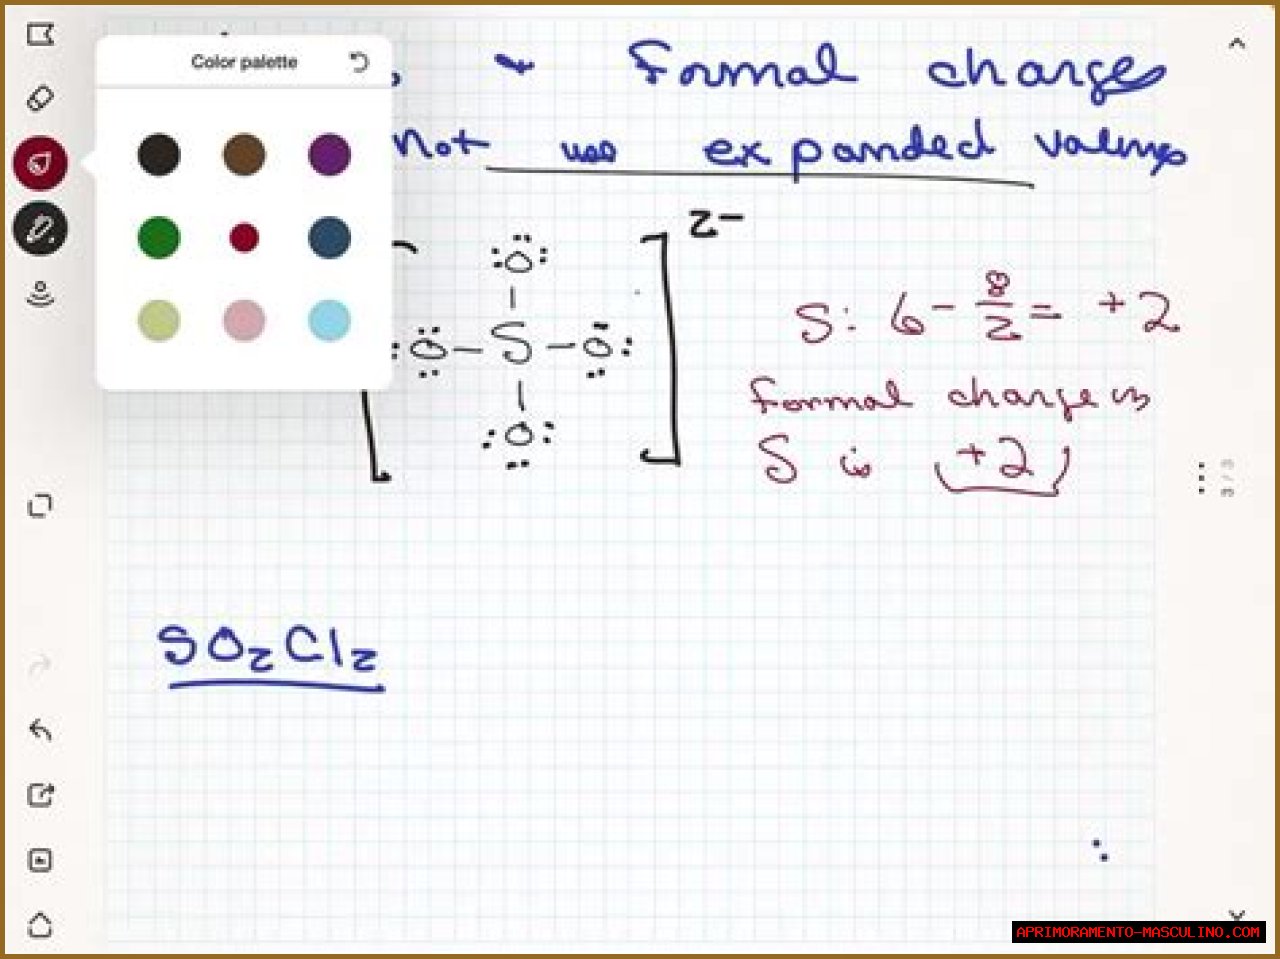 Color palette
Formal charges
not use expanded valency
[ :O: – S – O: ] 2−
O
O
S: 6 - 8/2 = +2
Formal charge in
S is +2
3 / 3
SO₂Cl₂
APRIMORAMENTO-MASCULINO.COM